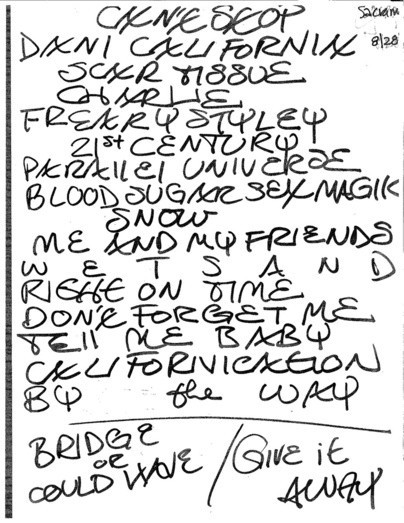 CAN'T STOP
Sacram
8/28
DANI CALIFORNIA
SCAR TISSUE
CHARLIE
FREAKY STYLEY
21st CENTURY
PARAllEl UNIVERSE
BLOOD SUGAR SEX MAGIK
SNOW
ME AND MY FRIENDS
WET SAND
RIGHT ON TIME
DON'T FORGET ME
TEll ME BABY
CALIFORNICATION
BY the WAY
BRIDGE
OR
COULD HAVE / GIVE it
AWAY